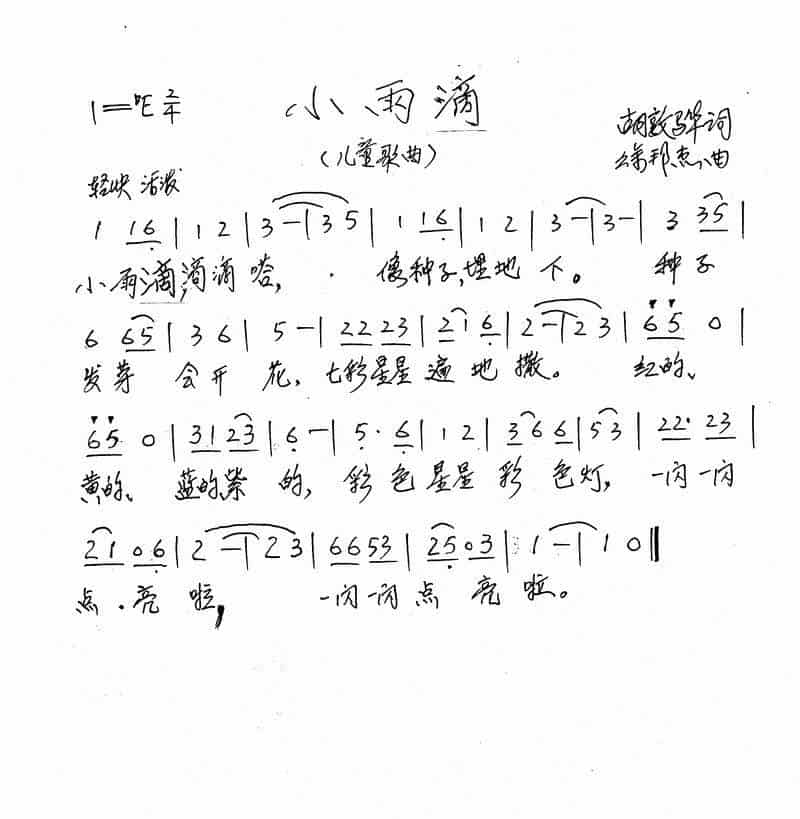 1=♭E 2/4 小雨滴
(儿童歌曲)
胡敦骅词
曲
轻快 活泼
1 16 | 1 2 | 3 — | 3 5 | 1 16 | 1 2 | 3 — | 3 — | 3 35 |
小雨滴,滴滴嗒, 像种子,埋地下。 种子
6 65 | 3 6 | 5 — | 22 23 | 21 6 | 2 — | 2 3 | 65 0 |
发芽 会开花,七彩星星遍地撒。 红的、
65 0 | 31 23 | 6 — | 5· 6 | 1 2 | 36 6 | 53 | 22· 23 |
黄的、蓝的紫的,彩色星星彩色灯,一闪一闪
21 06 | 2 — | 2 3 | 6653 | 25 03 | 1 — | 1 0 ‖
点·亮啦, 一闪一闪点亮啦。